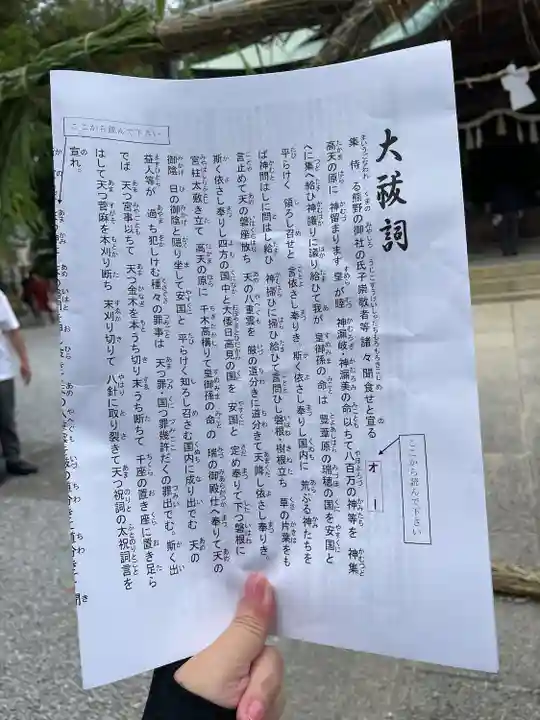 大祓詞
集侍る熊野の御社の氏子崇敬者等諸々聞食せと宣る
オー
ここから読んで下さい
高天の原に 神留まります 皇が睦 神漏岐・神漏美の命以ちて八百万の神等を 神集
へに集へ給ひ神議りに議り給ひて我が 皇御孫の命は 豊葦原の瑞穂の国を安国と
平らけく 領ろし召せと 言依さし奉りき 斯く依さし奉りし国内に 荒ぶる神たちを
ば神問はしに問はし給ひ 神掃ひに掃ひ給ひて言問ひし磐根・樹根立ち 草の片葉をも
言止めて天の磐座放ち 天の八重雲を 厳の道分きに道分きて天降し依さし奉りき
斯く依さし奉りし四方の国中と大倭日高見の国を 安国と 定め奉りて下つ磐根に
宮柱太敷き立て 高天の原に 千木高構りて皇御孫の命の 瑞の御殿仕へ奉りて天の
御陰 日の御陰と隠り坐して安国と 平らけく知ろし召さむ国内に成り出でむ 天の
益人等が 過ち犯しけむ種々の罪事は 天つ罪・国つ罪幾許だくの罪出でむ。斯く出
では 天つ宮事以ちて 天つ金木を本うち切り末うち断ちて 千座の置き座に置き足ら
はして天つ菅麻を本刈り断ち 末刈り切りて 八針に取り裂きて天つ祝詞の太祝詞言を
宣れ。
ここから読んで下さい